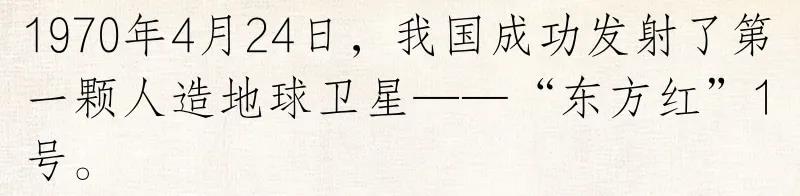 1970年4月24日，我国成功发射了第
一颗人造地球卫星——“东方红”1
号。